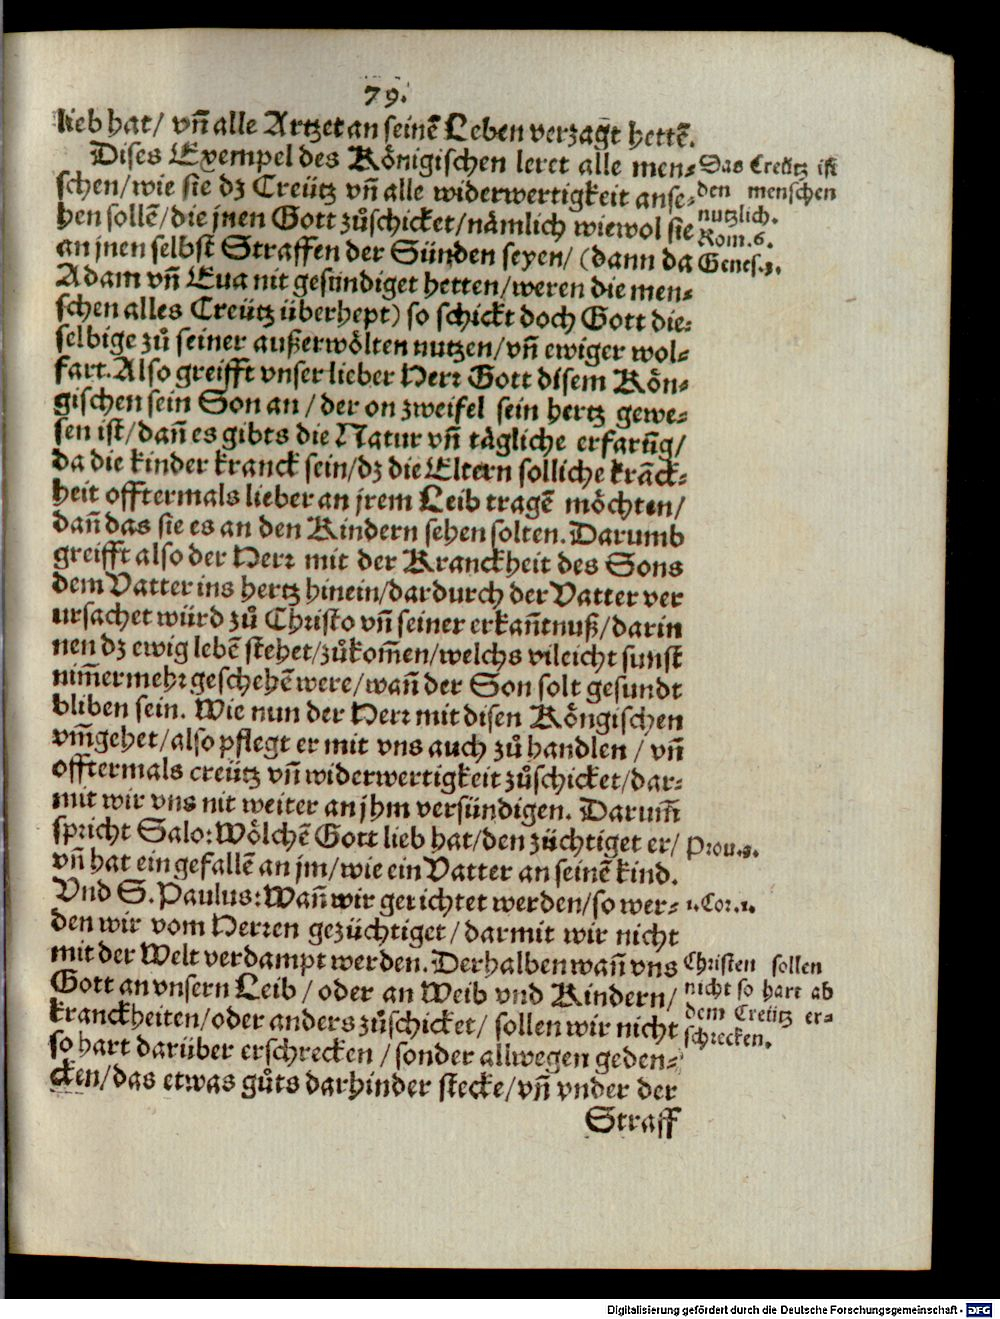 79.
lieb hat/ vñ alle Artzet an seinē Leben verzagt hettē.
Dises Exempel des Königischen leret alle men-
schen/wie sie dz Creütz vñ alle widerwertigkeit anse-
hen sollē/die jnen Gott zůschicket/nämlich wiewol sie
an jnen selbst Straffen der Sünden seyen/ (dann da
Adam vñ Eua nit gesündiget hetten/weren die men-
schen alles Creütz überhept) so schickt doch Gott die-
selbige zů seiner außerwölten nutzen/vñ ewiger wol-
fart. Also greifft vnser lieber Herr Gott disem Kön-
gischen sein Son an / der on zweifel sein hertz gewe-
sen ist/dañ es gibts die Natur vñ tägliche erfarũg/
da die kinder kranck sein/dz die Eltern solliche krãck-
heit offtermals lieber an jrem Leib tragē möchten/
dañ das sie es an den Kindern sehen solten. Darumb
greifft also der Herr mit der Kranckheit des Sons
dem Vatter ins hertz hinein/dardurch der Vatter ver
ursachet würd zů Christo vñ seiner erkañtnuß/darin
nen dz ewig lebē stehet/zůkom̃en/welchs vileicht sunst
nim̃ermehr geschehē were/wañ der Son solt gesundt
bliben sein. Wie nun der Herr mit disen Köngischen
vm̃gehet/also pflegt er mit vns auch zů handlen / vñ
offtermals creütz vñ widerwertigkeit zůschicket/dar-
mit wir vns nit weiter an jhm versündigen. Darum̃
spricht Salo: Wölchē Gott lieb hat/den züchtiget er/
vñ hat ein gefallē an jm/wie ein Vatter an seinē kind.
Vnd S. Paulus: Wañ wir gerichtet werden/so wer-
den wir vom Herren gezüchtiget/darmit wir nicht
mit der Welt verdampt werden. Derhalben wañ vns
Gott an vnsern Leib / oder an Weib vnd Kindern/
kranckheiten/oder anders zůschicket/ sollen wir nicht
so hart darüber erschrecken / sonder allwegen geden-
cken/das etwas gůts darhinder stecke/vñ vnder der
Straff
Das Creütz ist
den menschen
nutzlich.
Rom.6.
Genes.3.
Prou.3.
1.Cor.11.
Christen sollen
nicht so hart ab
dem Creütz er-
schrecken.
Digitalisierung gefördert durch die Deutsche Forschungsgemeinschaft - DFG